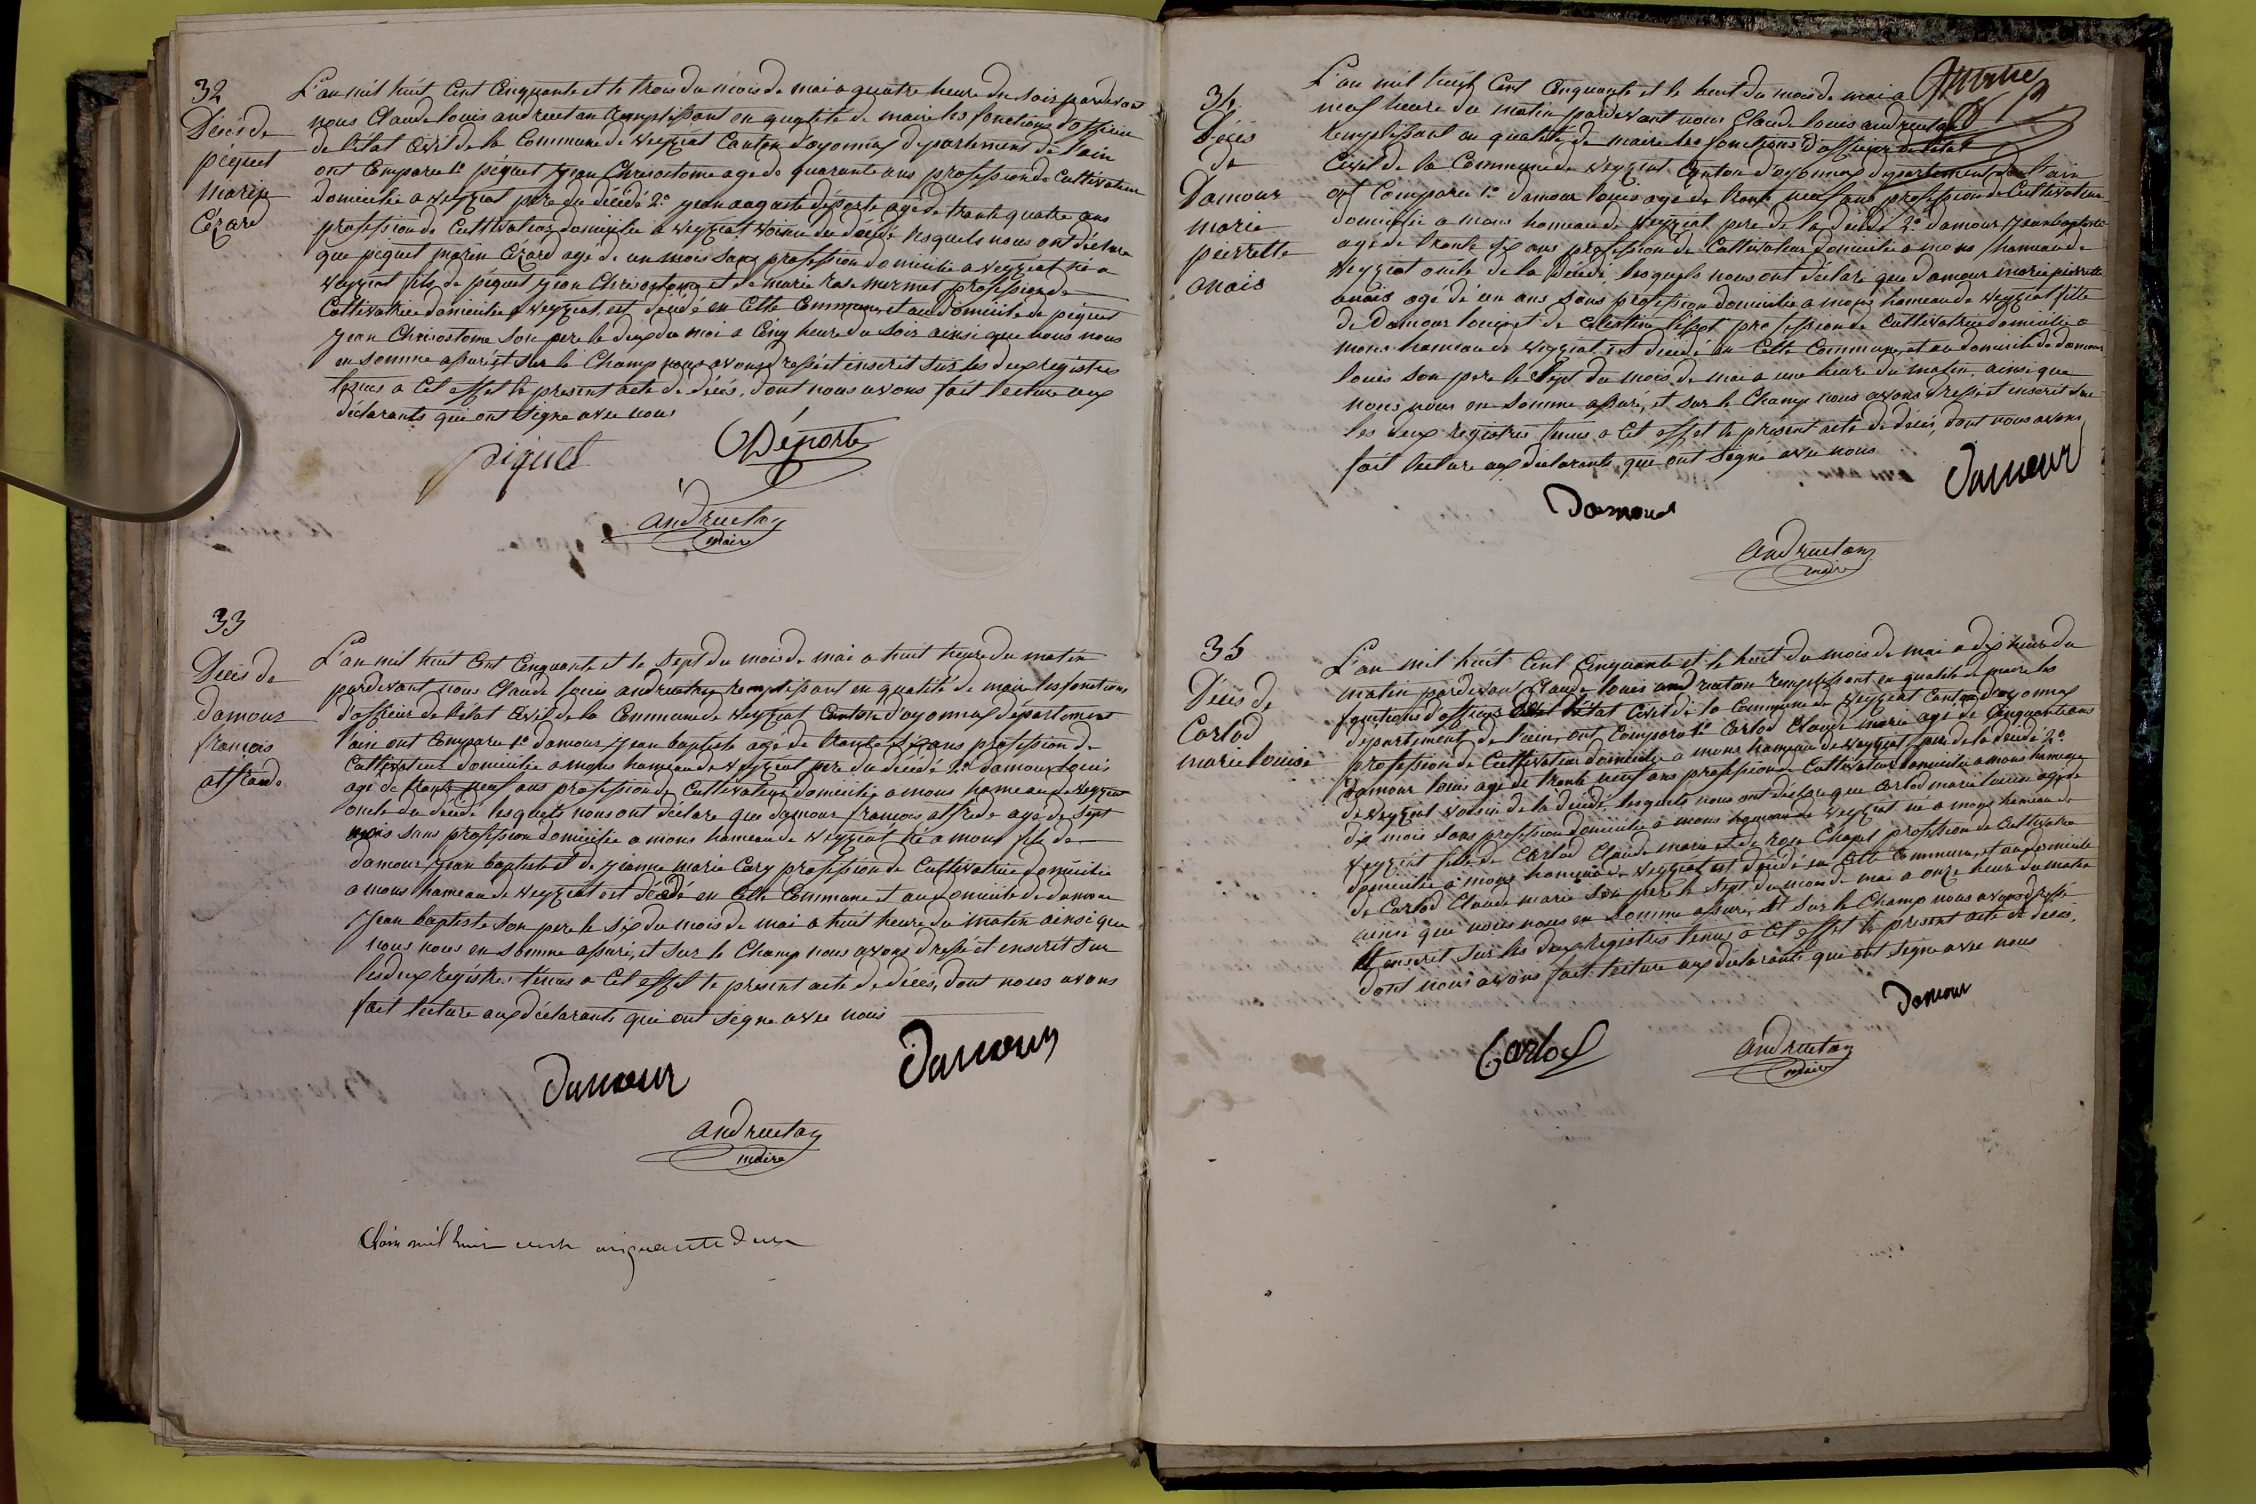 32
Décès de
piquet
marin
Cézard
L'an mil huit Cent Cinquante et le trois du mois de mai a quatre heure du soir pardevant
nous Claude louis andruetan Remplissant en qualité de maire les fonctions d'officier
de l'état Civil de la Commune de Veyziat Canton d'oyonnax département de l'ain
ont Comparu 1º piquet jean Chrisostome agé de quarante ans profession de Cultivateur
domicilié a Veyziat père du décédé 2º jean auguste déporte agé de trente quatre ans
profession de Cultivateur domicilié a Veyziat voisin du décédé lesquels nous ont déclaré
que piquet marin Cézard agé de un mois sans profession domicilié a Veyziat né a
Veyziat fils de piquet jean Chrisostome et de marie rose mermet profession de
Cultivatrice domiciliée a Veyziat est décédé en Cette Commune et au domicile de piquet
jean Chrisostome son pere le deux du mai a Cinq heure du soir ainsi que nous nous
en somme assuré et sur le Champ nous avons dressé et inscrit sur les deux registres
tenus a Cet effet le present acte de décès, dont nous avons fait lecture aux
déclarants qui ont signé avec nous
piquet
Déporte
andruetan
maire
33
Décès de
damour
francois
alfrede
L'an mil huit Cent Cinquante et le sept du mois de mai a huit heure du matin
pardevant nous Claude louis andruetan remplissant en qualité de maire les fonctions
d'officier de l'état Civil de la Commune de Veyziat Canton d'oyonnax département
l'ain ont Comparu 1º damour jean baptiste agé de trente six ans profession de
Cultivateur domicilié a mons hameau de Veyziat pere du décédé 2º damour louis
agé de trente neuf ans profession de Cultivateur domicilié a mons hameau de Veyziat
oncle du décédé lesquels nous ont déclaré que damour francois alfrede agé de sept
mois sans profession domicilié a mons hameau de Veyziat né a mons fils de
damour jean baptiste et de jeanne marie Cary profession de Cultivatrice domiciliée
a mons hameau de Veyziat est décédé en Cette Commune et au domicile de damour
jean baptiste son pere le six du mois de mai a huit heure du matin ainsi que
nous nous en somme assuré, et sur le Champ nous avons dressé et inscrit sur
les deux registres tenus a Cet effet le présent acte de décès, dont nous avons
fait lecture aux déclarants qui ont signé avec nous
damour
damour
andruetan
maire
mil huit cent cinquante deux
34
Décès
de
Damour
marie
pierrette
anais
L'an mil huit Cent Cinquante et le huit du mois de mai a
neuf heure du matin pardevant nous Claude louis andruetan
remplissant en qualité de maire les fonctions d'officier de l'état
Civil de la Commune de Veyziat Canton d'oyonnax département de l'ain
ont Comparu 1º damour louis agé de trente neuf ans profession de Cultivateur
domicilié a mons hameau de Veyziat pere de la décédé 2º damour jean baptiste
agé de trente six ans profession de Cultivateur domicilié a mons hameau de
Veyziat oncle de la décédé lesquels nous ont déclaré que damour marie pierrette
anais agé de un ans sans profession domiciliée a mons hameau de Veyziat fille
de Damour louis et de Celestine profession de Cultivatrice domiciliée a
mons hameau de Veyziat est décédé en Cette Commune, et au domicile de damour
louis son pere le sept du mois de mai a une heure du matin, ainsi que
nous nous en somme assuré, et sur le Champ nous avons dressé et inscrit sur
les deux registres tenus a Cet effet le présent acte de décès, dont nous avons
fait lecture aux déclarants, qui ont signé avec nous
Damour
damour
andruetan
maire
35
Décès de
Carlod
marie louise
L'an mil huit Cent Cinquante et le huit du mois de mai a dix heure du
matin pardevant Claude louis andruetan remplissant en qualité de maire les
fonctions d'officier de l'état Civil de la Commune de Veyziat Canton d'oyonnax
département de l'ain, ont Comparu 1º Carlod Claude marie agé de Cinquante ans
profession de Cultivateur domicilié a mons hameau de Veyziat pere de la décédé 2º
Damour louis agé de trente neuf ans profession de Cultivateur domicilié a mons hameau
de Veyziat voisin de la décédé, lesquels nous ont déclaré que Carlod marie louise agé de
dix mois sans profession domiciliée a mons hameau de Veyziat né a mons hameau de
Veyziat fille de Carlod Claude marie et de rose Chapel profession de Cultivatrice
domiciliée a mons hameau de Veyziat est décédé en Cette Commune, et au domicile
de Carlod Claude marie son pere le sept du mois de mai a onze heure du matin
ainsi que nous nous en somme assuré, et sur le Champ nous avons dressé
et inscrit sur les deux registres tenus a Cet effet le présent acte de décès,
dont nous avons fait lecture aux déclarants qui ont signé avec nous
Damour
Carlod
andruetan
maire